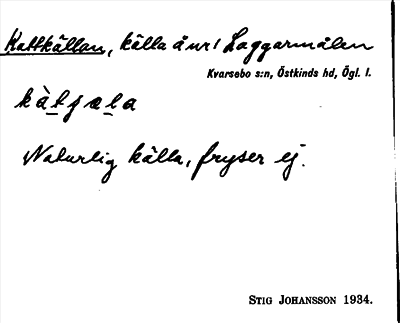 Kattkällan, källa å nr 1 Laggarmålen
Kvarsebo s:n, Östkinds hd, Ögl. l.
kàtjæla
Naturlig källa, fryser ej.
STIG JOHANSSON 1934.